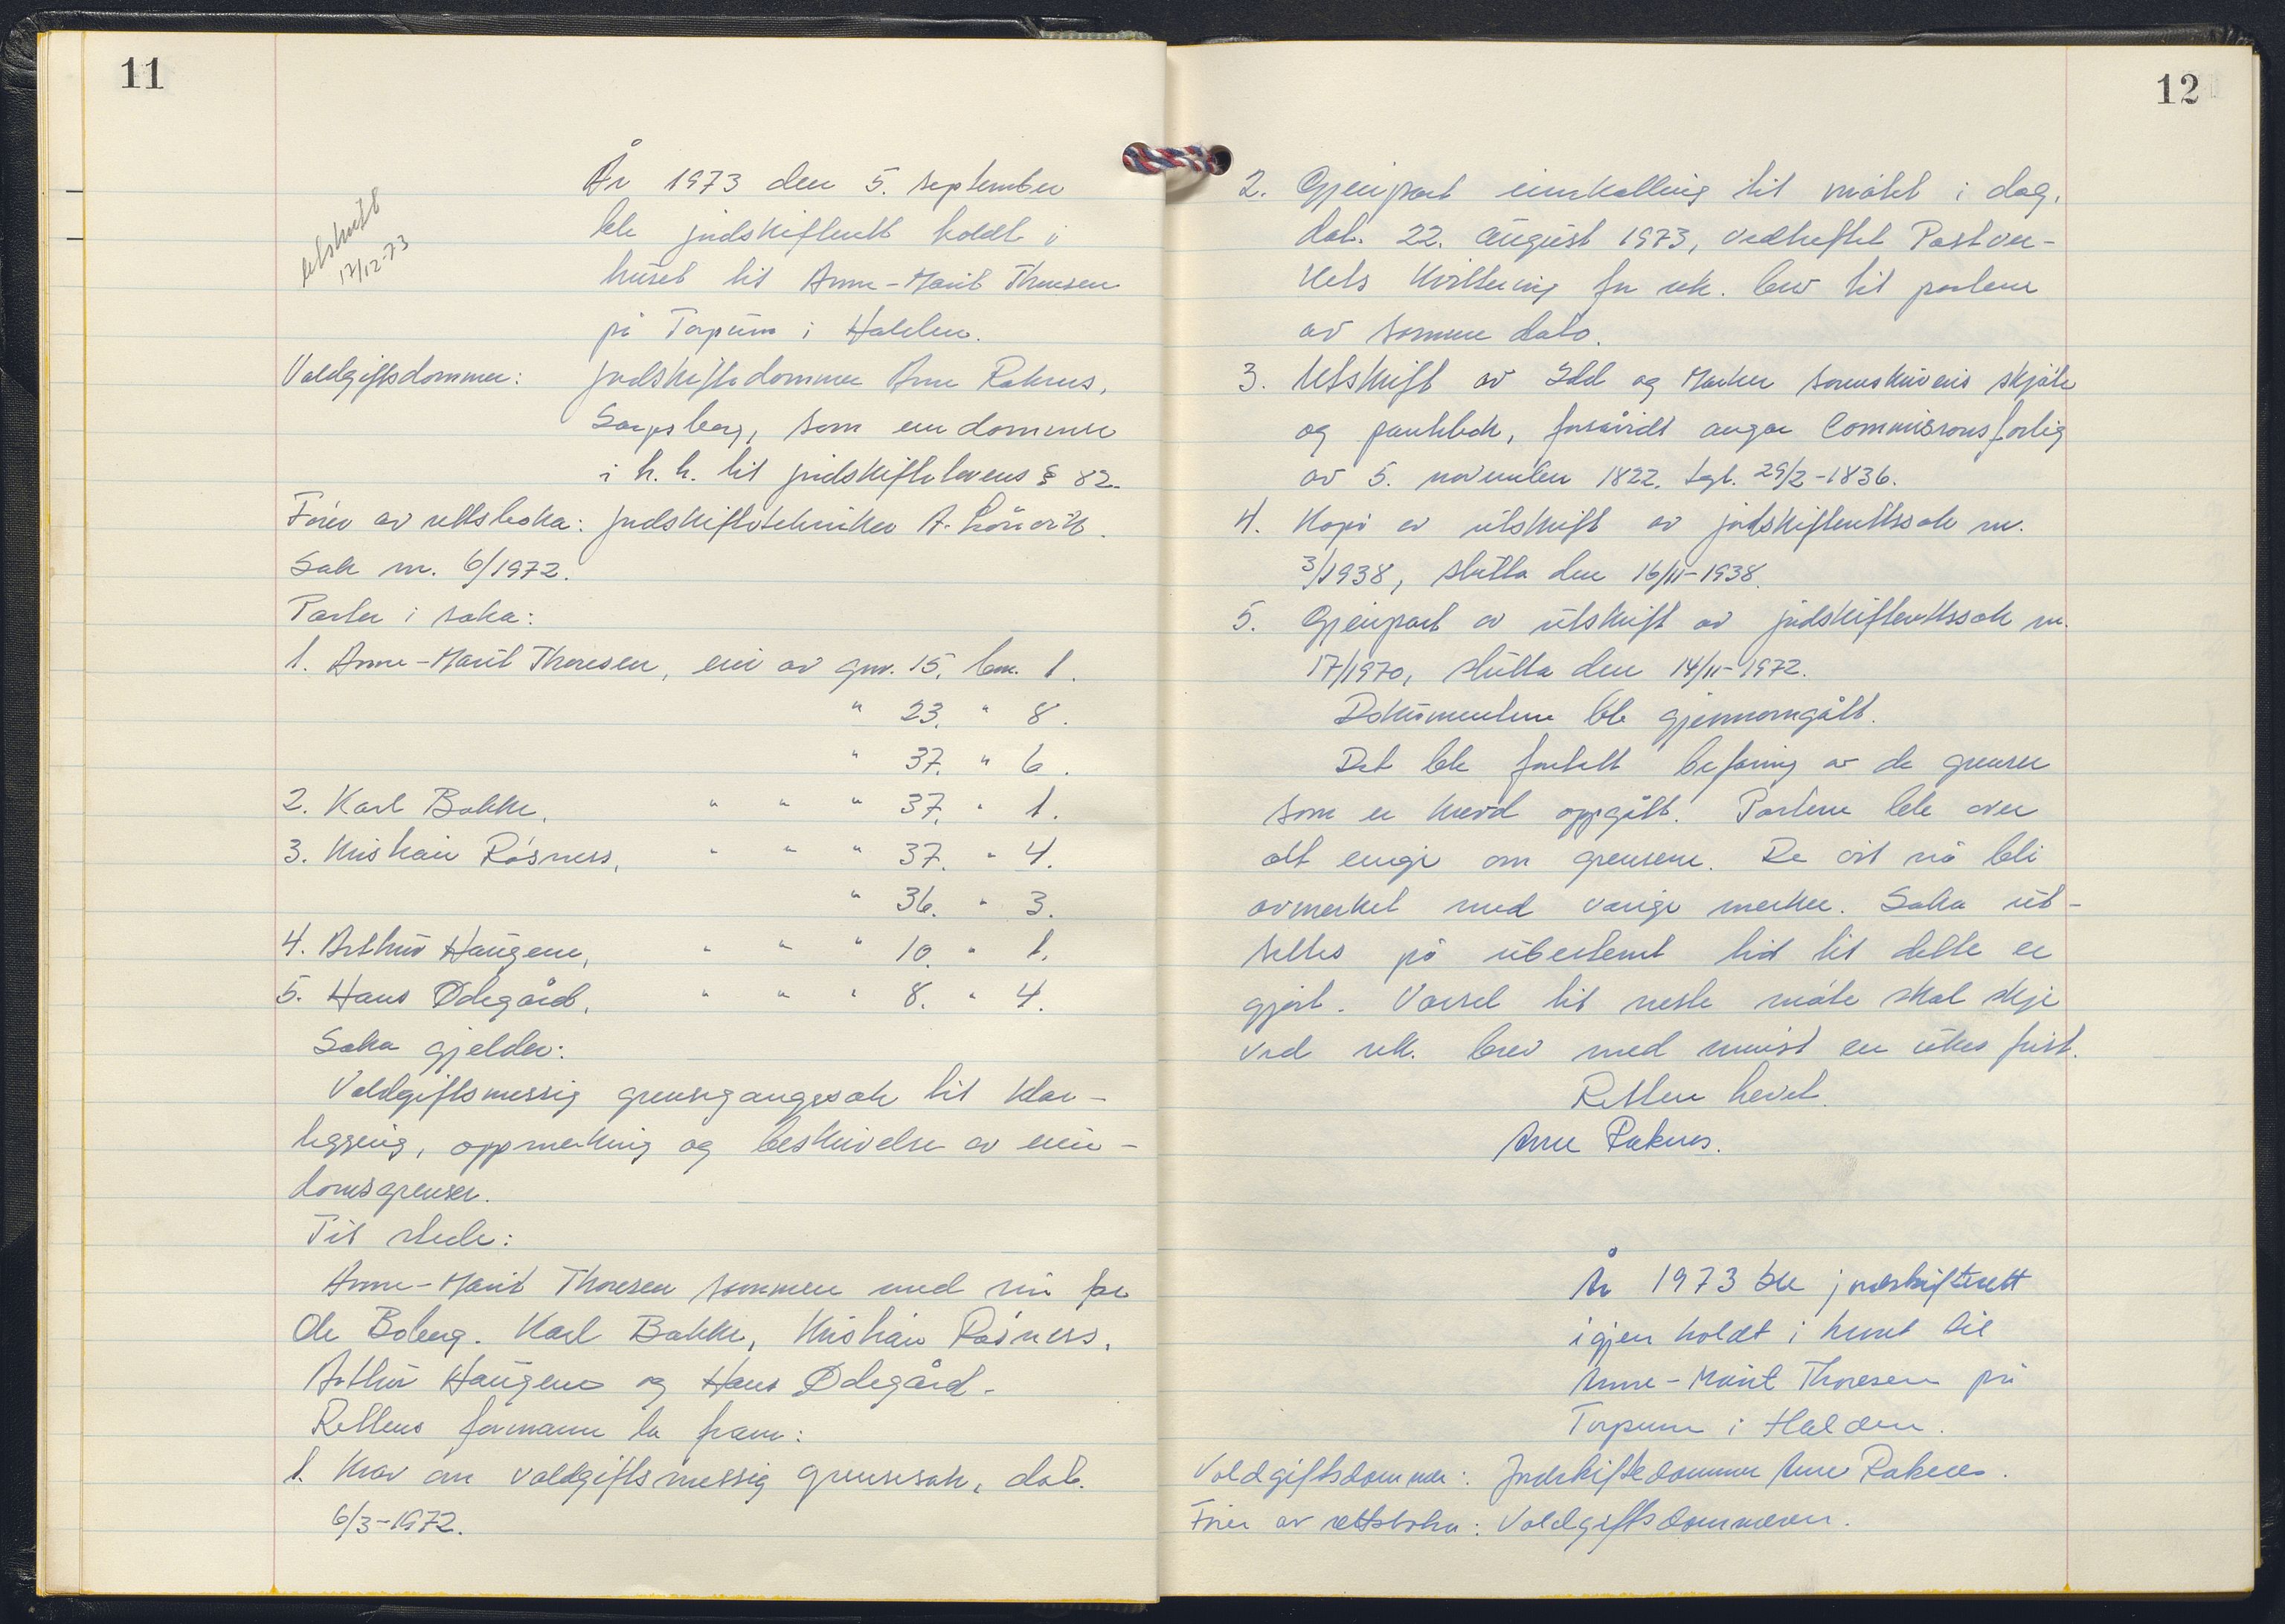 11
År 1973 den 5. september
ble jordskifterett holdt i
huset til Anne-Marit Thoresen
på Torpum i Halden.
utskrift
17/12-73
Voldgiftsdommer: Jordskiftedommer Arne Raknes,
Sarpsborg, som enedommer
i h.h. til jordskiftelovens § 82.
Fører av rettsboka: Jordskiftetekniker A.
Sak nr. 6/1972.
Parter i saka:
1. Anne-Marit Thoresen, eier av gnr. 15, bnr. 1.
" 23, " 8.
" 37. " 6.
2. Karl Bakke, " " " 37. " 1.
3. Kristian Røsness, " " " 37. " 4.
" 36. " 3.
4. Arthur Haugene, " " " 10. " 1.
5. Hans Ødegård, " " " 8. " 4.
Saka gjelder:
Voldgiftsmessig grensegangssak til klar-
legging, oppmerking og beskrivelse av eien-
domsgrenser.
Til stede:
Anne-Marit Thoresen sammen med sin far
Ole Boberg. Karl Bakke, Kristian Røsness,
Arthur Haugene og Hans Ødegård.
Rettens formann la fram:
1. Krav om voldgiftsmessig grensesak, dat.
6/3-1972.
12
2. Gjenpart innkalling til møtet i dag,
dat. 22. august 1973, vedheftet Postver-
kets kvittering for rek. brev til partene
av samme dato.
3. Utskrift av Idd og Marker sorenskriveris skjøte
og pantebok, forsåvidt angår Commisionsforlig
av 5. november 1822, tgl. 29/2-1836.
4. Kopi av utskrift av jordskifterettssak nr.
3/1938, slutta den 16/11-1938.
5. Gjenpart av utskrift av jordskifterettssak nr.
17/1970, slutta den 14/11-1972.
Dokumentene ble gjennomgått.
Det ble foretatt befaring av de grenser
som er krevd oppgått. Partene ble over
alt enige om grensene. De vil nå bli
avmerket med varige merker. Saka ut-
settes på ubestemt tid til dette er
gjort. Varsel til neste møte skal skje
ved rek. brev med minst en ukes frist.
Retten hevet.
Arne Raknes.
År 1973 ble jordskifterett
igjen holdt i huset til
Anne-Marit Thoresen på
Torpum i Halden.
Voldgiftsdommer: Jordskiftedommer Arne Raknes.
Fører av rettsboka: Voldgiftsdommeren.